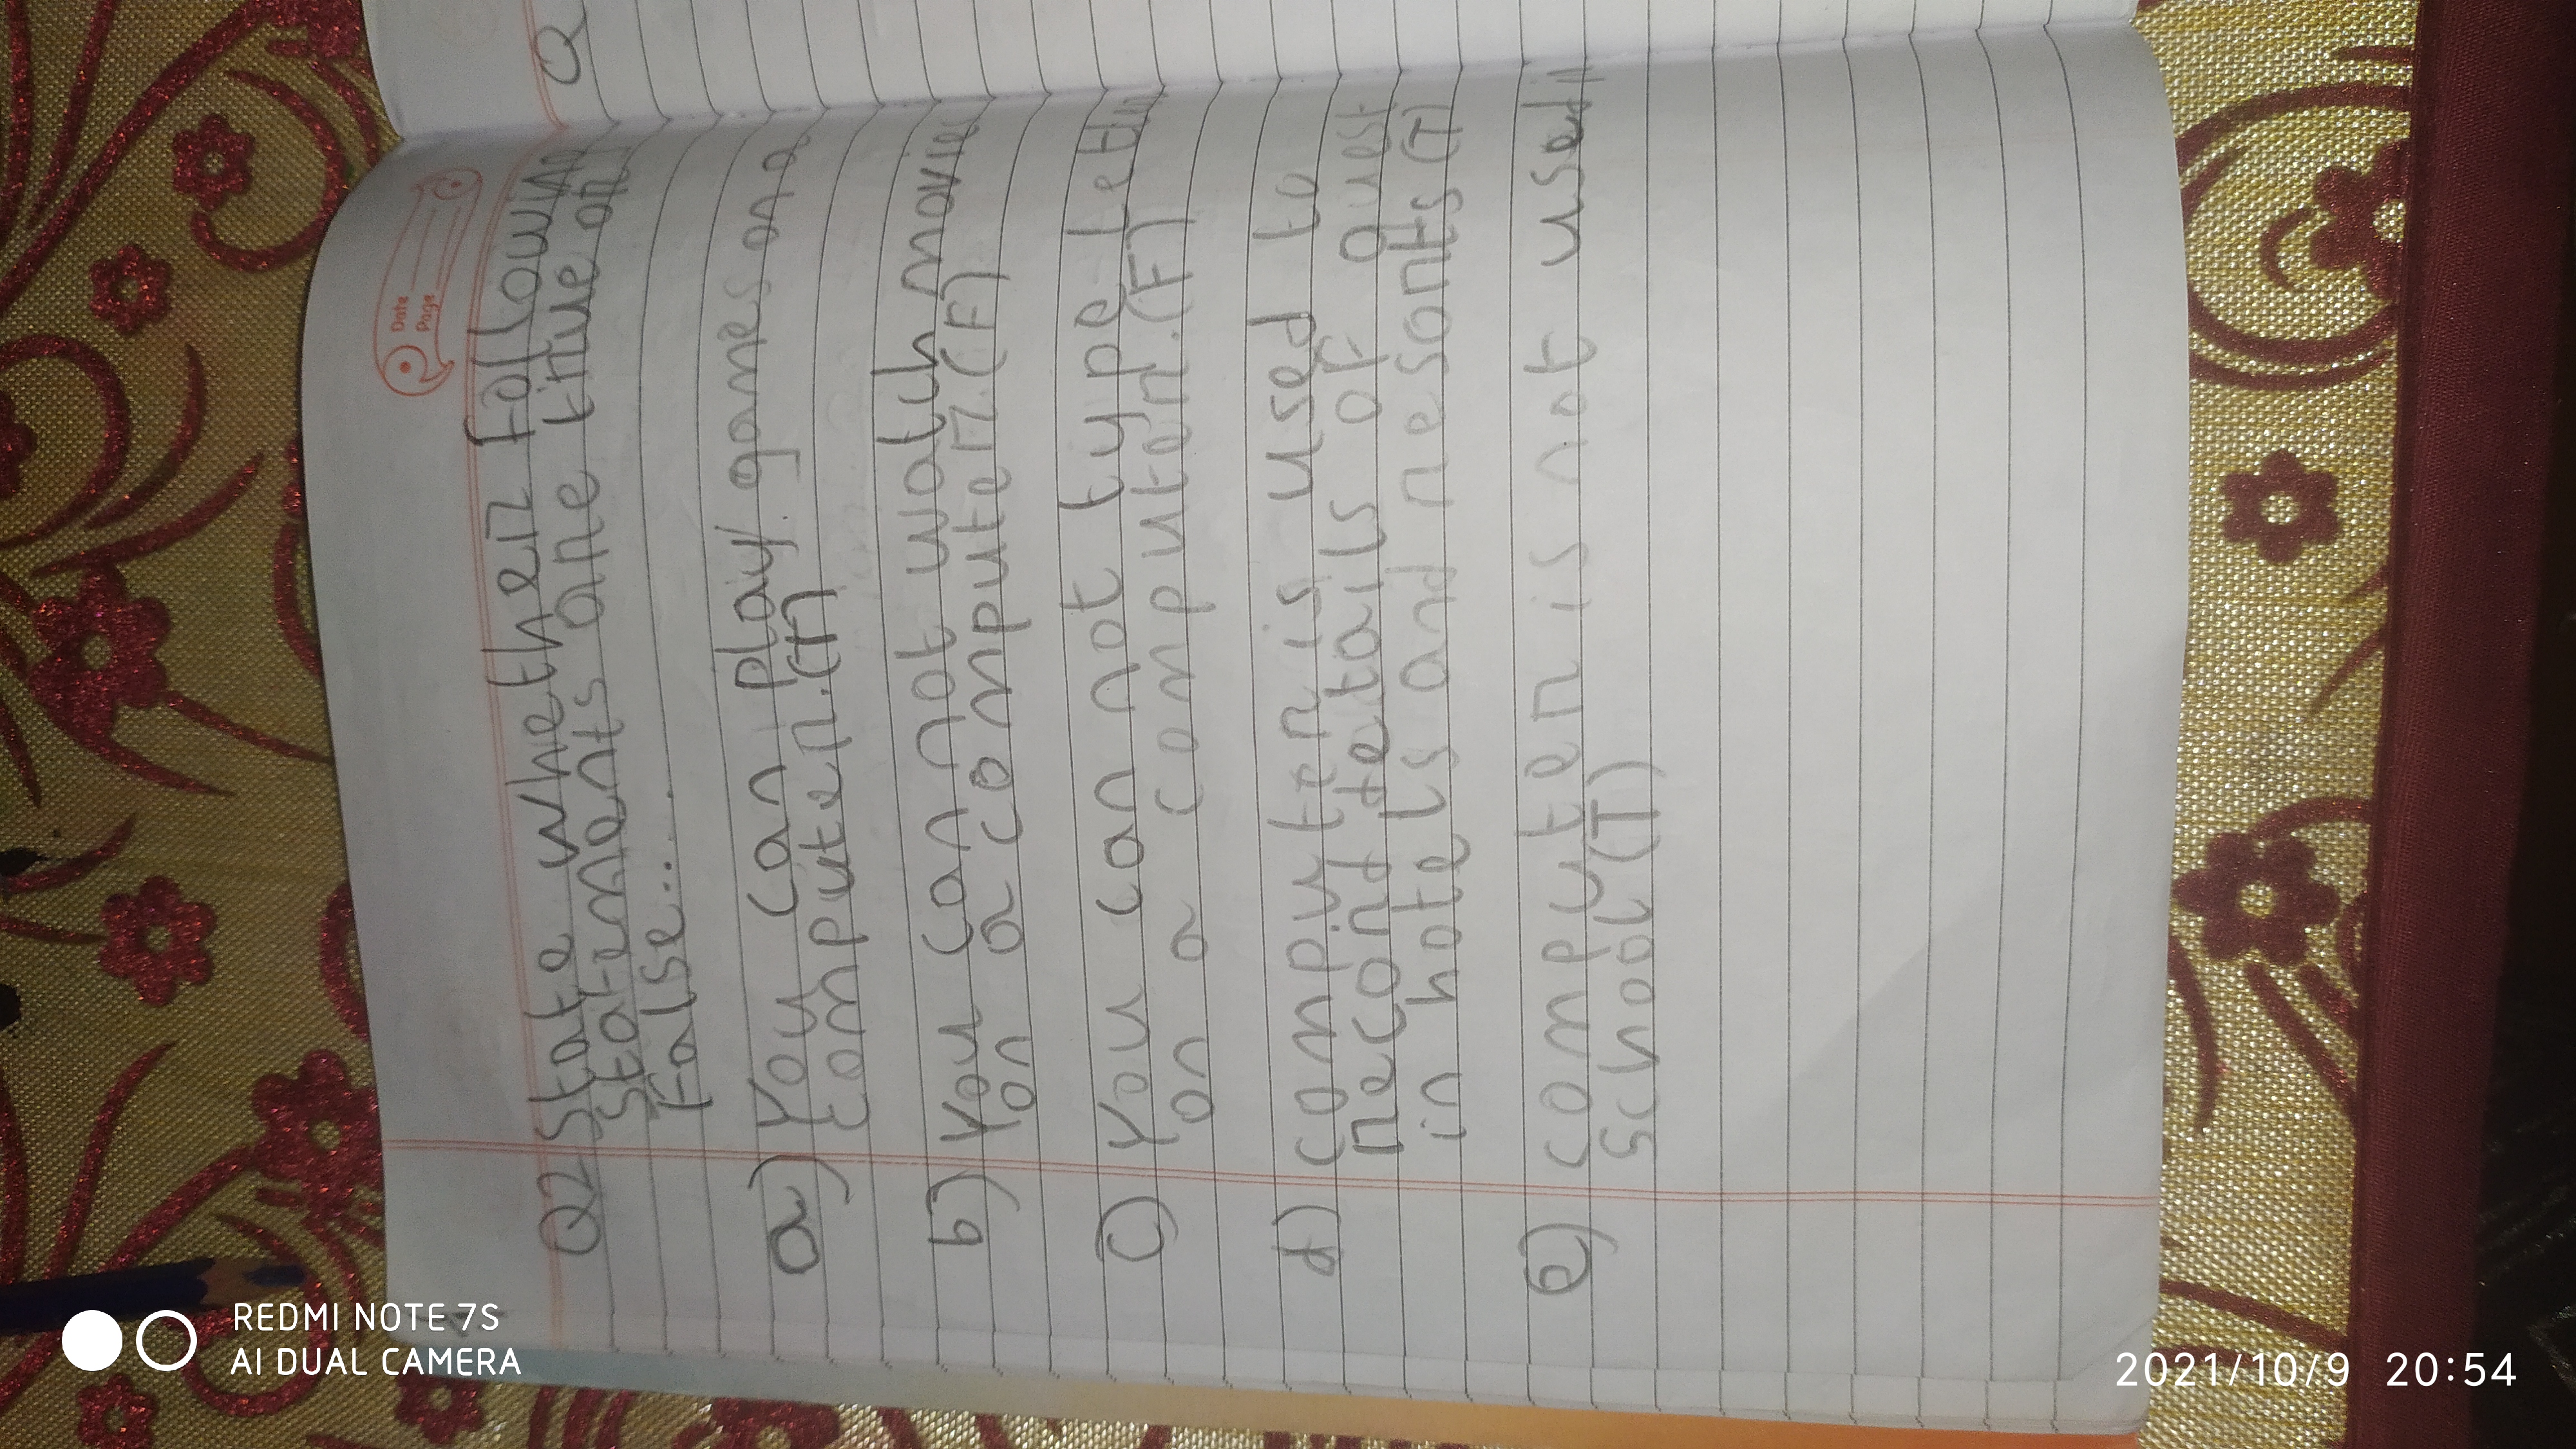 Date
Page
Q
Q2 State whether following
Statements are true or
False....
a) You can play games on a
computer.(T)
b) You can not watch movie
on a computer.(F)
c) You can not type
on a computer.(F)
d) computer is used to
record details of guest
in hotels and resorts (T)
e) computer is not used in
school (T)
REDMI NOTE 7S
AI DUAL CAMERA
2021/10/9 20:54